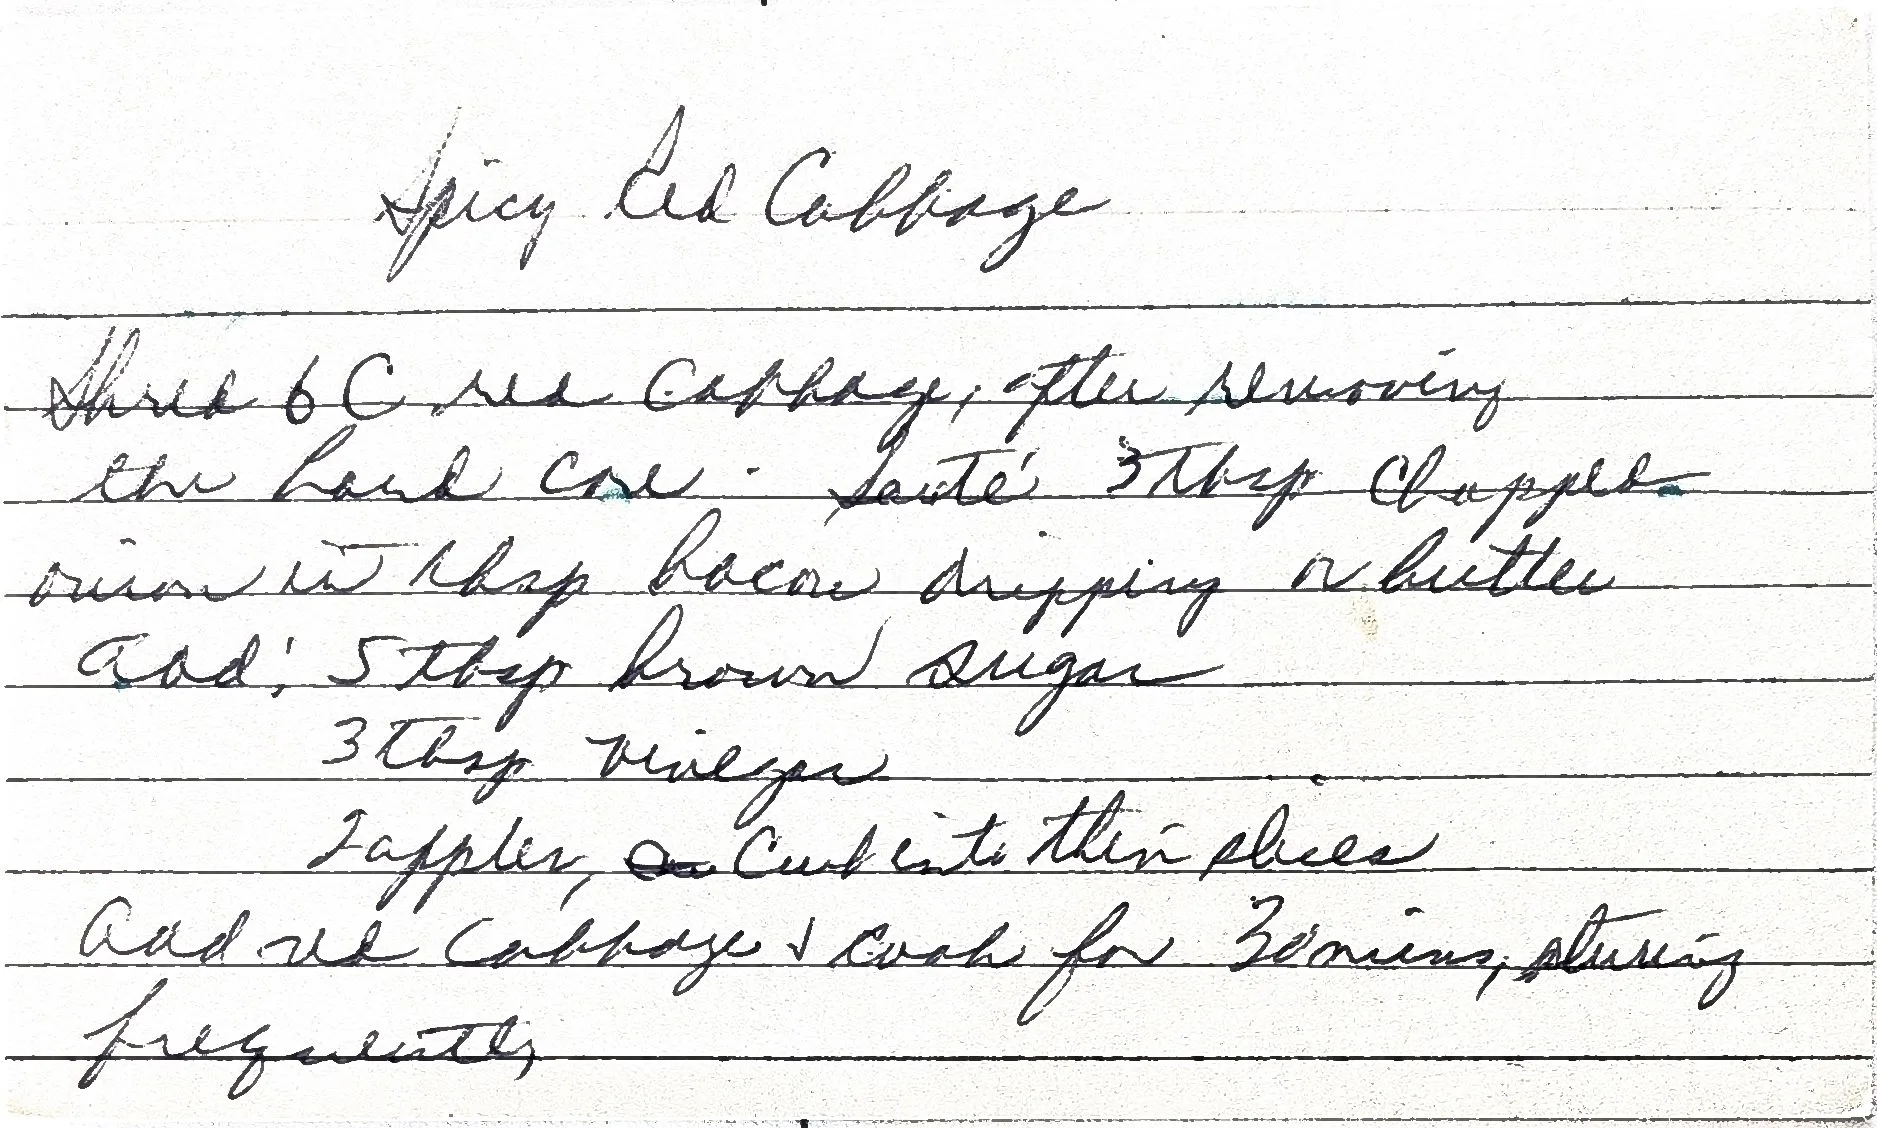 Spicy Red Cabbage
Shred 6 C red Cabbage, after removing
the hard core. Sauté 3 Tbsp Chopped
onion in Tbsp bacon dripping or butter
Add: 5 Tbsp brown sugar
3 Tbsp vinegar
2 apples, Cut into thin slices
Add red Cabbage & cook for 30 mins, stirring
frequently